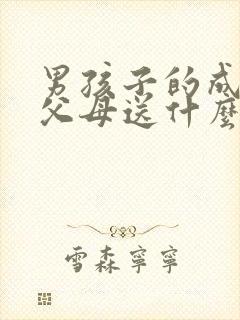 男孩子的成
父母送什麼
雪森寧寧